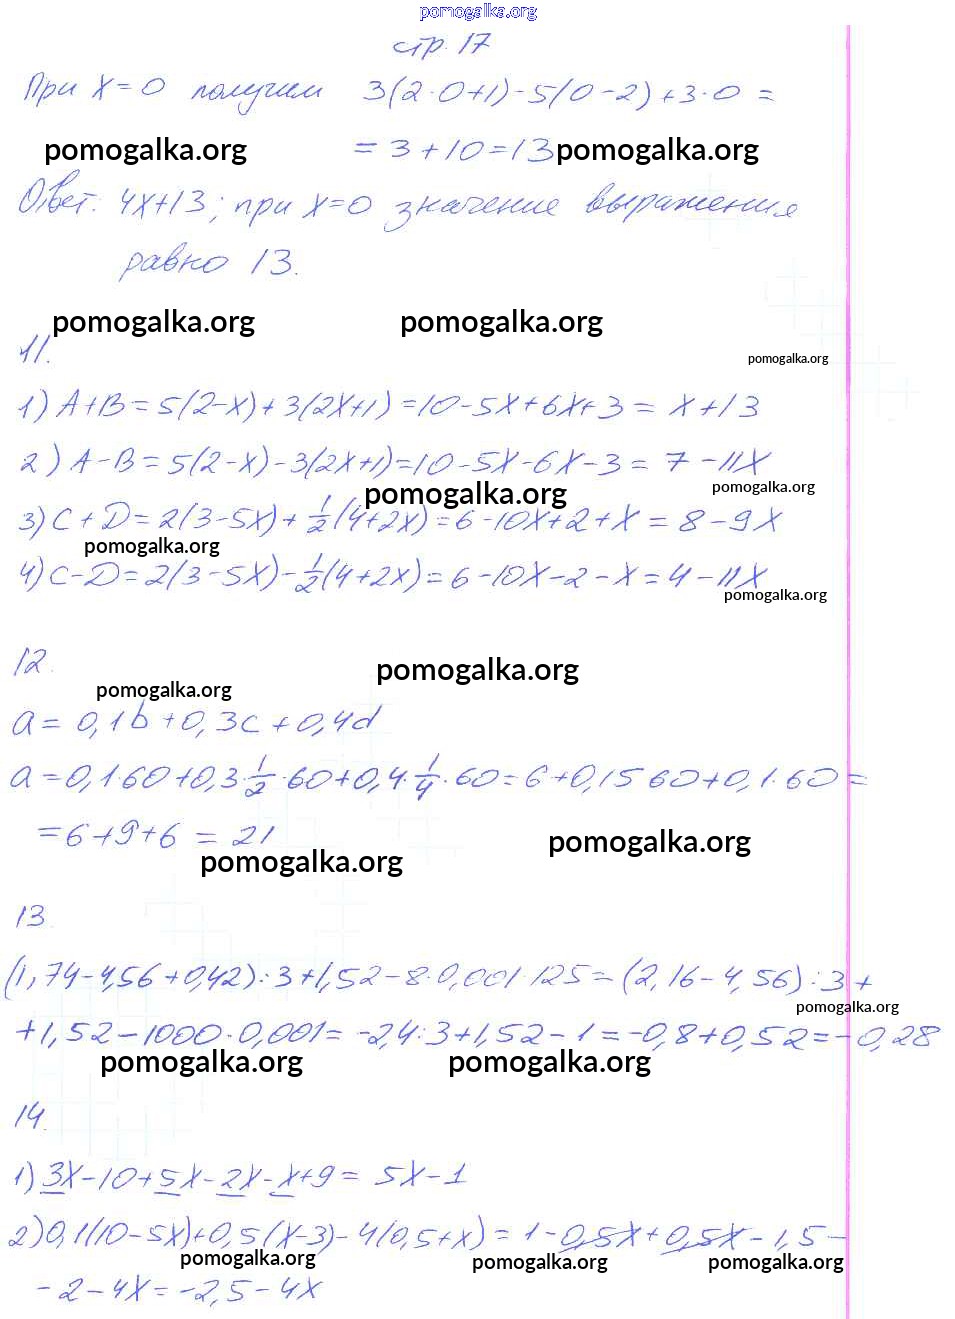 pomogalka.org
стр. 17
При x=0 получим 3(2·0+1)-5(0-2)+3·0 =
pomogalka.org = 3+10=13 pomogalka.org
Ответ: 4x+13; при x=0 значение выражения
равно 13.
pomogalka.org pomogalka.org
11.
pomogalka.org
1) A+B=5(2-x)+3(2x+1)=10-5x+6x+3= x+13
2) A-B=5(2-x)-3(2x+1)=10-5x-6x-3= 7-11x
pomogalka.org pomogalka.org
3) C+D=2(3-5x)+1/2(4+2x)=6-10x+2+x=8-9x
pomogalka.org
4) C-D=2(3-5x)-1/2(4+2x)=6-10x-2-x=4-11x
pomogalka.org
12.
pomogalka.org
pomogalka.org
a= 0,1b+0,3c+0,4d
a=0,1·60+0,3·1/2·60+0,4·1/4·60=6+0,15 60+0,1·60=
=6+9+6 = 21
pomogalka.org
pomogalka.org
13.
(1,74-4,56+0,42):3+1,52-8·0,001·125=(2,16-4,56):3+
pomogalka.org
+1,52-1000·0,001=-2,4:3+1,52-1=-0,8+0,52=-0,28
pomogalka.org pomogalka.org
14.
1) 3x-10+5x-2x-x+9= 5x-1
2) 0,1(10-5x)+0,5(x-3)-4(0,5+x)=1-0,5x+0,5x-1,5-
pomogalka.org pomogalka.org pomogalka.org
-2-4x=-2,5-4x